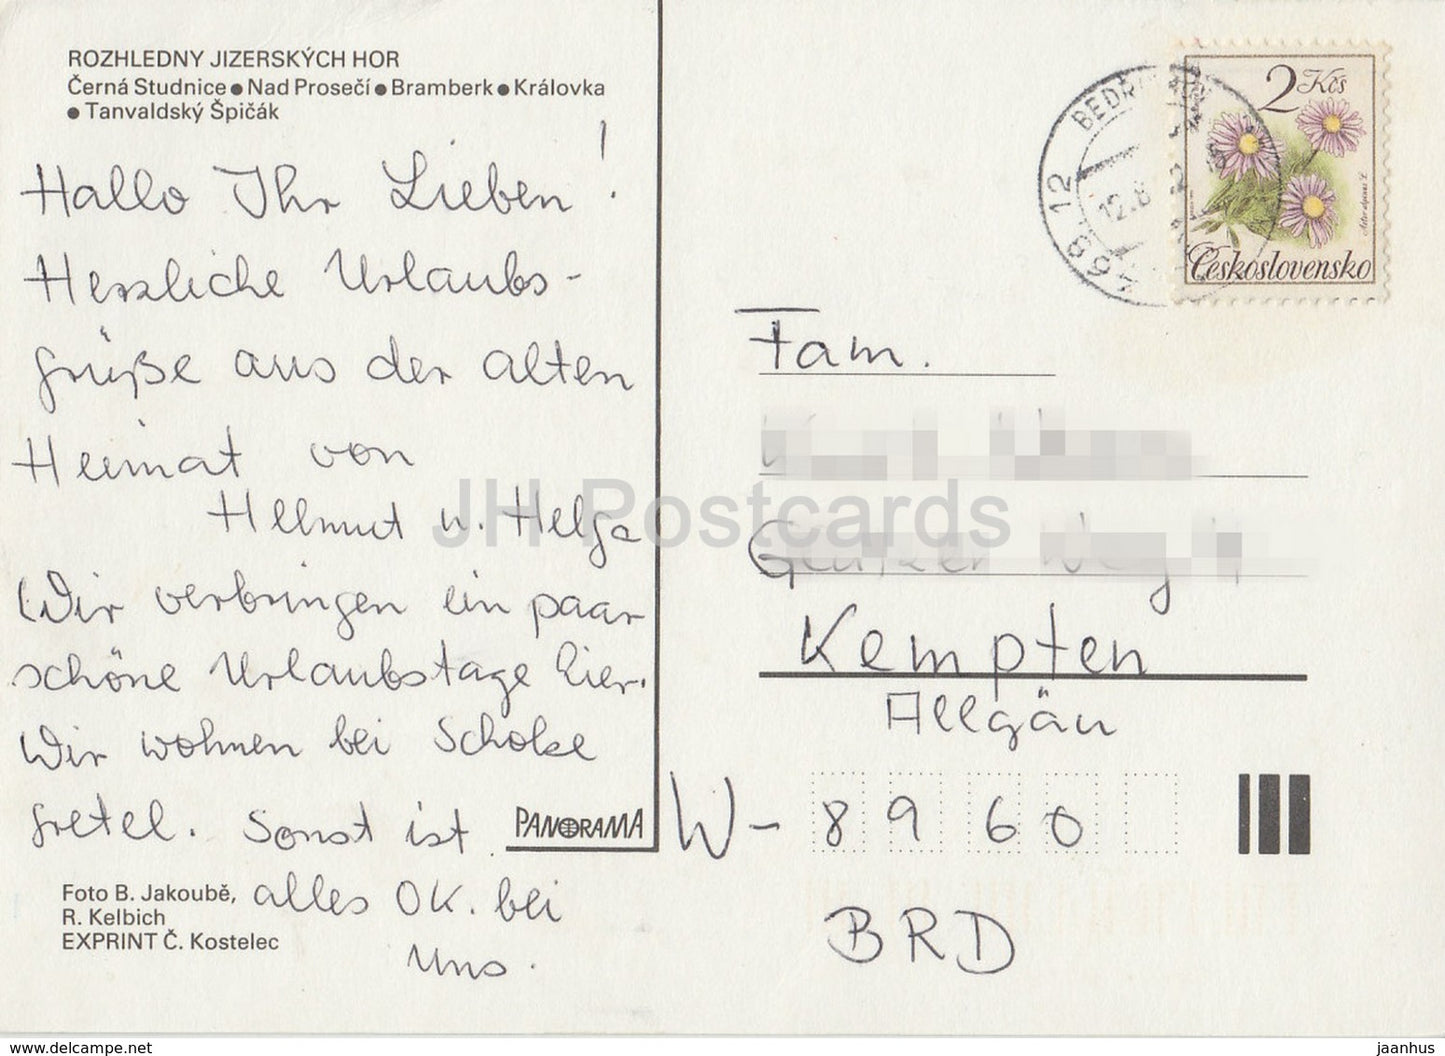 ROZHLEDNY JIZERSKÝCH HOR
Černá Studnice ● Nad Prosečí ● Bramberk ● Královka
● Tanvaldský Špičák
Hallo Ihr Lieben!
Herzliche Urlaubs-
grüße aus der alten
Heimat von
Hellmut u. Helga
Wir verbringen ein paar
schöne Urlaubstage hier.
Wir wohnen bei Scholze
gretel. Sonst ist
alles OK. bei
uns.
PANORAMA
Foto B. Jakoubě,
R. Kelbich
EXPRINT Č. Kostelec
2 Kčs
Československo
468 12
12.8
Fam.
Kempten
Allgäu
W-8960
BRD
JH Postcards
www.delcampe.net
jaanhus